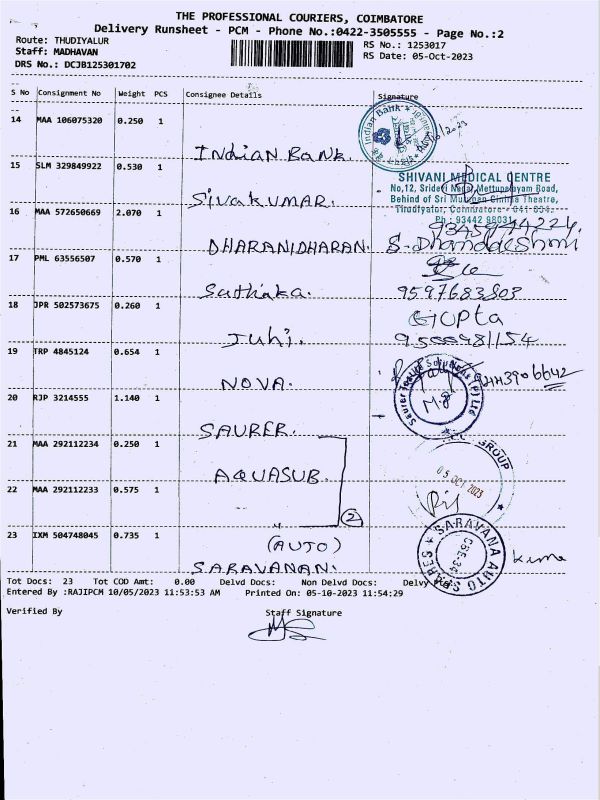 THE PROFESSIONAL COURIERS, COIMBATORE
Delivery Runsheet - PCM - Phone No.:0422-3505555 - Page No.:2
Route: THUDIYALUR
Staff: MADHAVAN
DRS No.: DCJB125301702
RS No.: 1253017
RS Date: 05-Oct-2023
S No Consignment No Weight PCS Consignee Details Signature
14 MAA 106075320 0.250 1
Indian Bank
Indian Bank
15 SLM 329849922 0.530 1
SHIVANI MEDICAL CENTRE
No,12, Sridevi Nagar, Mettupalayam Road,
Behind of Sri Murugan Cinima Theatre,
Thudiyalur, Coimbatore - 641 034.
Ph : 93442 98031
SivakUMAR.
16 MAA 572650669 2.070 1
DHARANIDHARAN.
17 PML 63556507 0.570 1
Sathika.
9597683803
18 JPR 502573675 0.260 1
Gupta
Juhi.
19 TRP 4845124 0.654 1
NOVA.
20 RJP 3214555 1.140 1
Saurer Textile Solutions (P) Ltd
SAURER.
21 MAA 292112234 0.250 1
GROUP
05 OCT 2023
AQUASUB.
22 MAA 292112233 0.575 1
2
23 IXM 504748045 0.735 1
SARAVANA AUTO SPARES
CBE-34
(AUTO)
SARAVANAN.
Tot Docs: 23 Tot COD Amt: 0.00 Delvd Docs: Non Delvd Docs: Delvy
Entered By :RAJIPCM 10/05/2023 11:53:53 AM Printed On: 05-10-2023 11:54:29
Verified By Staff Signature